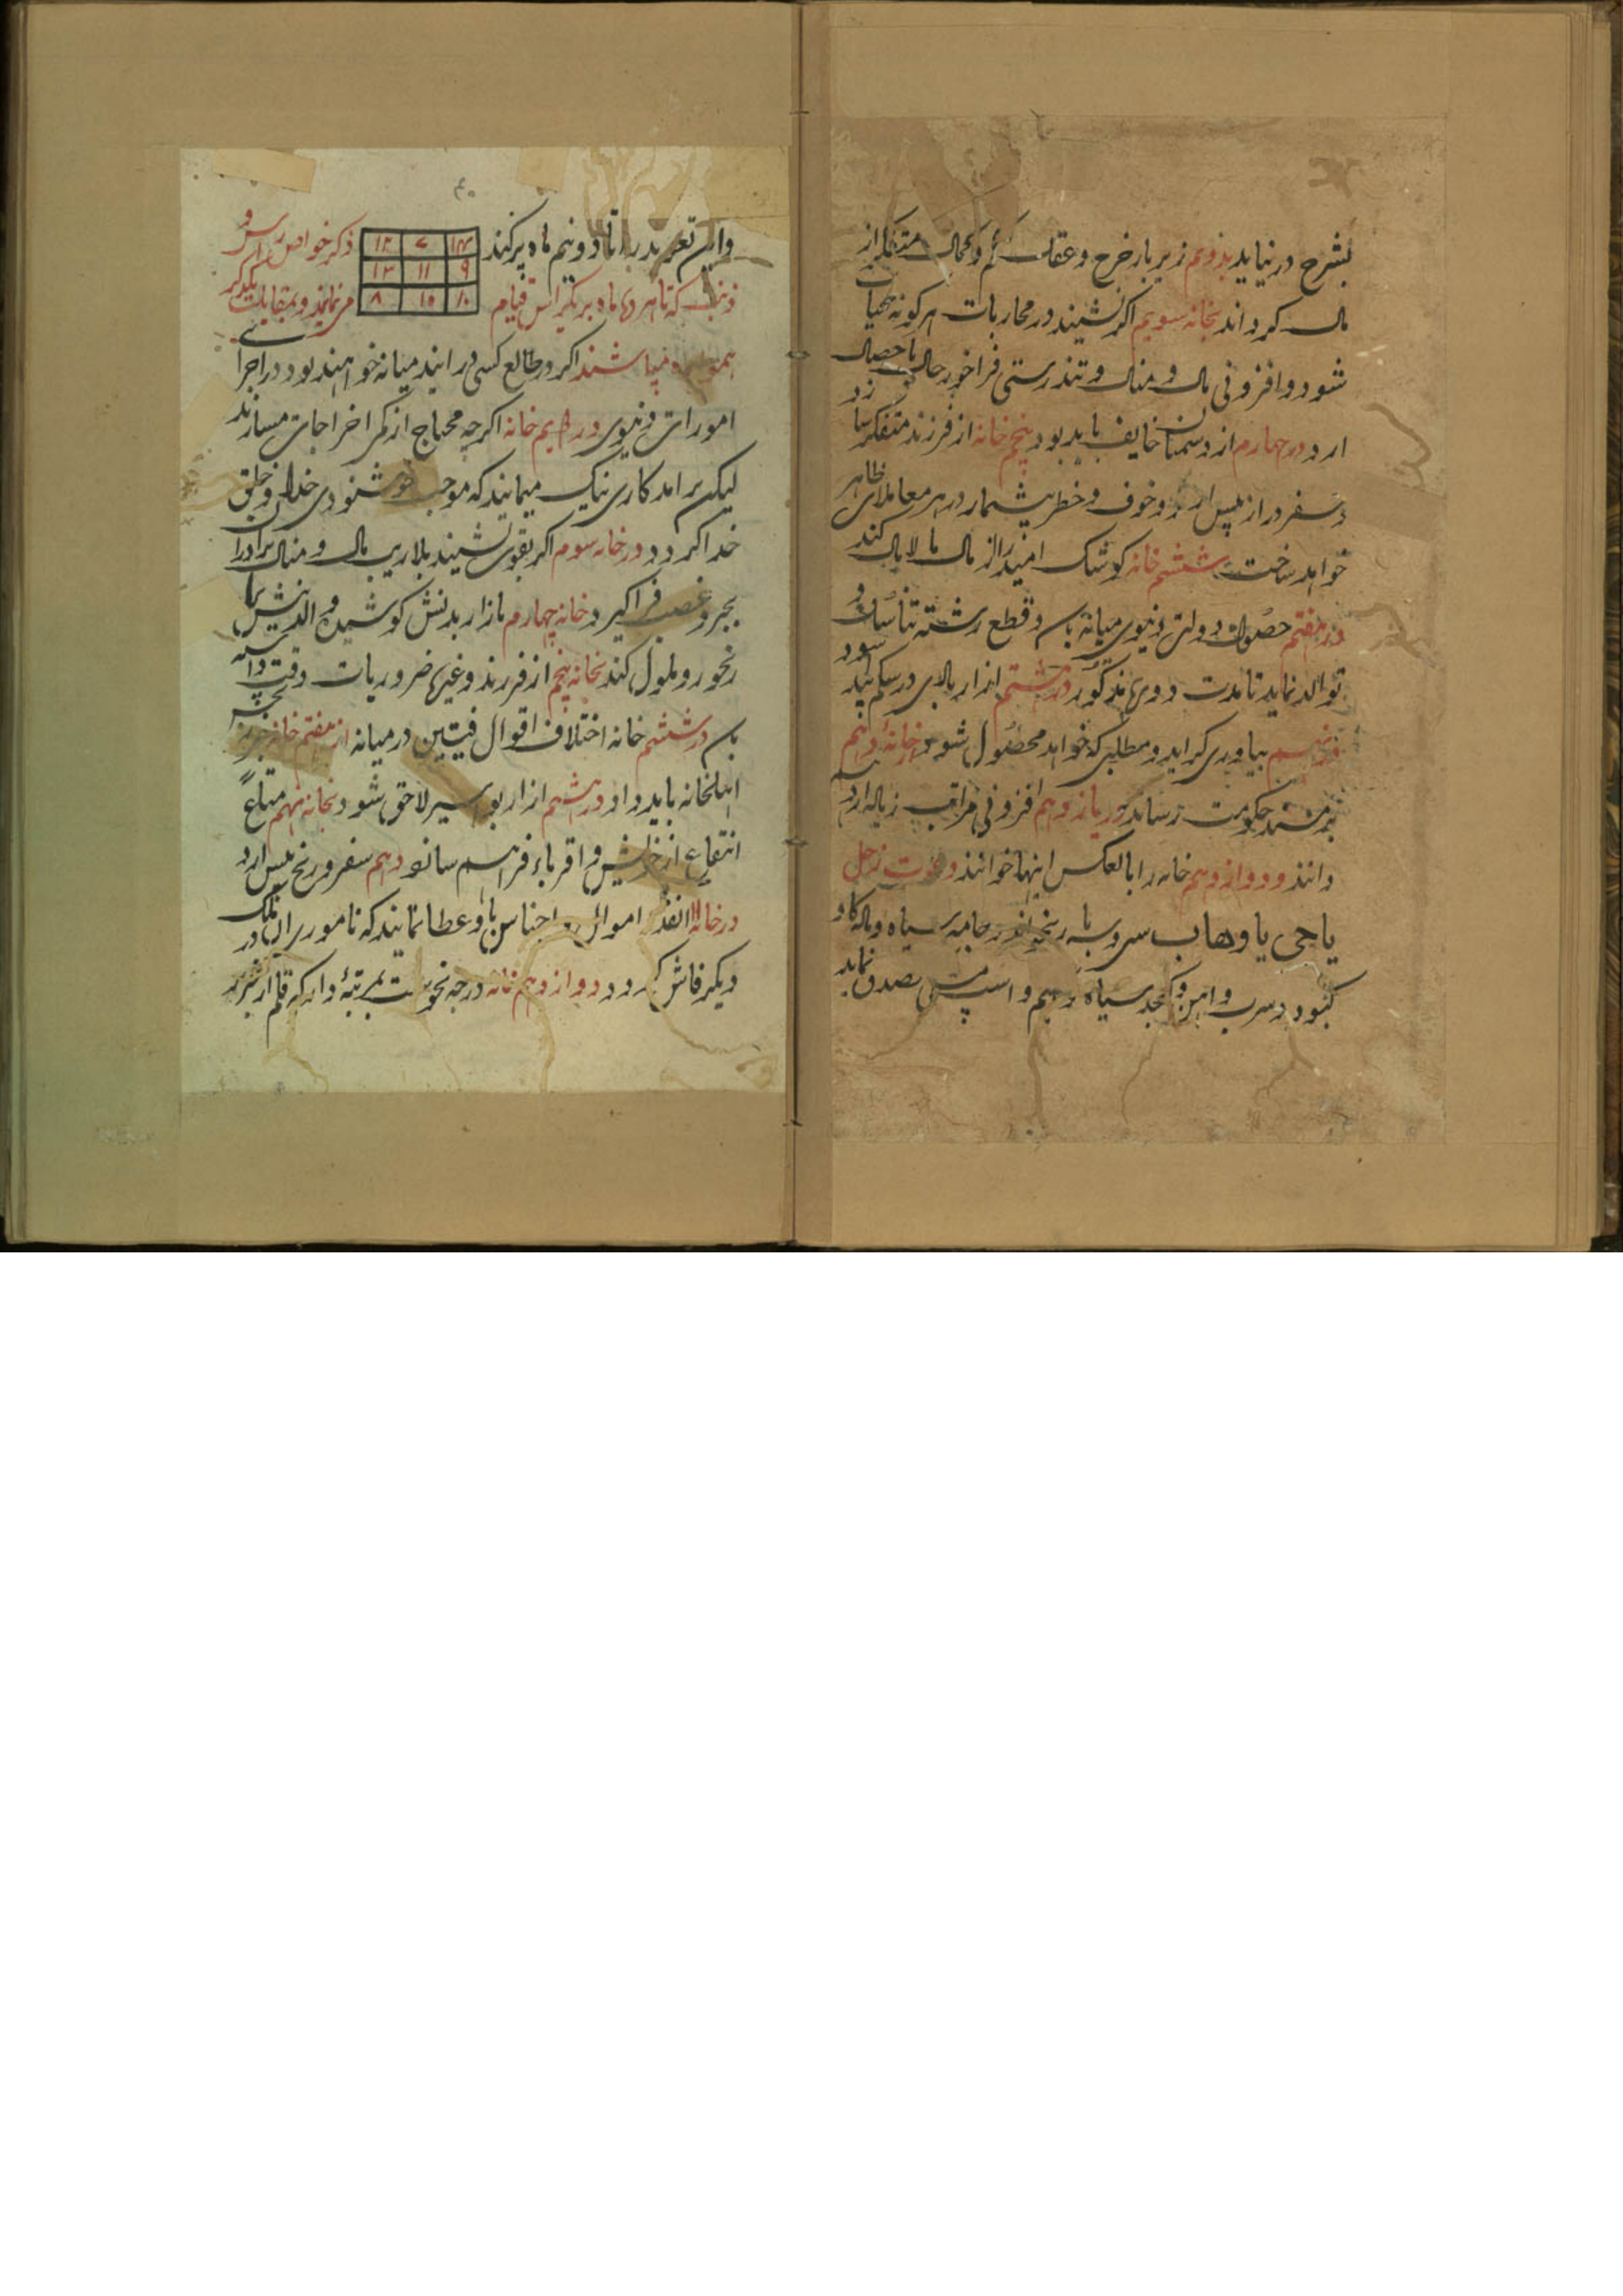 بشرح در نیاید بدویم زیر بار خرج و عقل کم و بحال متفکر از
مال کرداند بخانه سویم اکر نشیند در محاربات هر کونه محیا
شود و افزونی مال و منال و تندرستی فراخور حال با حصال
ارد در چهارم از دشمنان خایف باید بود پنجم خانه از فرزند متفکر سازد
و سفر دراز پیس ارد و خوف و خطر بیشمار در هر معاملای ظاهر
خواهد ساخت ششم خانه کوشک امید از مال مالامال کند
در هفتم حصول دولتی دنیوی میانه باس و قطع رشته تناسان و
توالد نماید تا مدت دوری مذکور در هشتم ازار بالای در شکم پید شود
در نهم بیاوری کراید و مطلبی که خواهد محصول شود و خانه دهم
بر مسند حکومت رساند در یازدهم افزونی مراتب زیاله ارد
دانند و دوازدهم خانه را بالعکس اینها خوانند دعوت زحل
یا حی یا وهاب سر و پا برنجی اندر جامه سیاه و ماله کاو
کبود و سرب و اهن و کنجد سیاه و اسپ مشکی تصدق نماید
۴۰
واین تعویذ را تا دو نیم ماه پر کند
۱۴ ۷ ۱۲
۹ ۱۱ ۱۳
۱۰ ۱۵ ۸
ذکر خواص راس و
ذنب که تا هر ماه بر یکراس قیام می نمایند و بمقابله یکدیکر
همواره میباشند اکر در طالع کسی در ایند میانه خواهند بود در اجرای
امورات دنیوی در دویم خانه اکرچه محتاج از کم اخراجات میسازند
لیکن برامد کاری نیک مینمایند که موجب خوشنودی خدا و خلق
خدا کردد در خانه سوم اکر بقوی نشیند بلاریب مال و منال برادران
بجبر و غصب فراکیرد خانه چهارم بازار بدنش کوشیده والدینش را
رنجور و ملول کند بخانه پنجم از فرزند و غیره ضروریات دقت
باس در ششم خانه اختلاف اقوال فیتین در میانه از هفتم خانه
اهلخانه باید داد در هشتم ازار بواسیر لاحق شود بخانه نهم متاع
انتفاع از خویش و اقرباء فراهم سازد دهم سفر و رنج پیس ارد
در خانه ۱۱ نقد اموال و اجناس باو عطا نمایند که نامور در
دیکر فاش کردد دوازدهم خانه درجه نحوست بمرتبهٔ دارد که قلم از تحریر